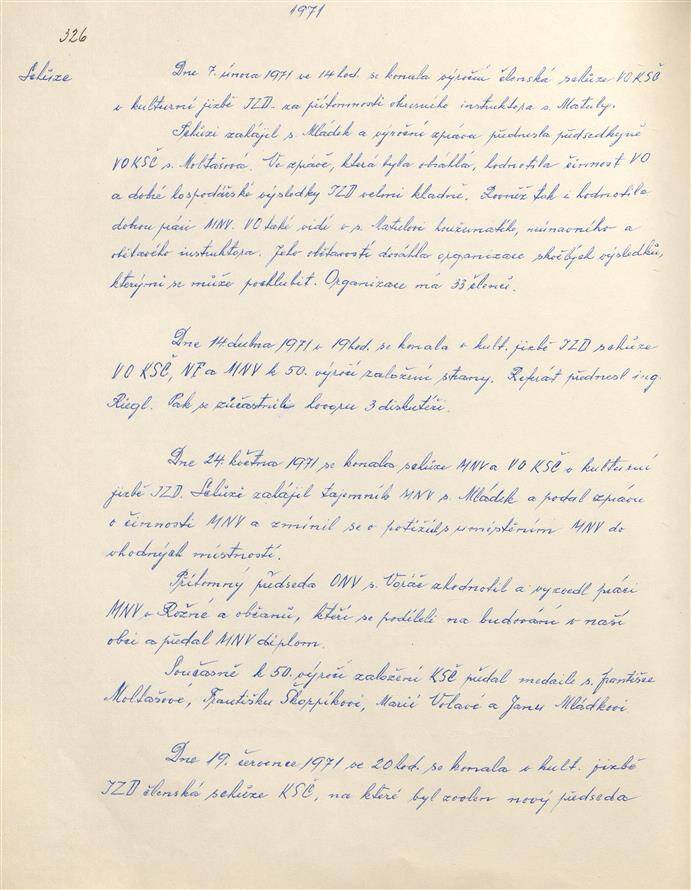 1971
326
Schůze
Dne 7. února 1971 ve 14 hod. se konala výroční členská schůze VO KSČ
v kulturní jizbě JZD za přítomnosti okresního instruktora s. Matuly.
Schůzi zahájil s. Mládek a výroční zprávu přednesla předsedkyně
VO KSČ s. Moltašová. Ve zprávě, která byla obsáhlá, hodnotila činnost VO
a dobré hospodářské výsledky JZD velmi kladně. Rovněž tak i hodnotila
dobrou práci MNV. VO také vidí v s. Matulovi houževnatého, neúnavného a
obětavého instruktora. Jeho obětavostí dosáhla organizace skvělých výsledků,
kterými se může pochlubit. Organizace má 33 členů.
Dne 14 dubna 1971 v 19 hod. se konala v kult. jizbě JZD schůze
VO KSČ, NF a MNV k 50. výročí založení strany. Referát přednesl ing.
Riegl. Pak se zúčastnili hovoru 3 diskutéři.
Dne 24. května 1971 se konala schůze MNV a VO KSČ v kulturní
jizbě JZD. Schůzi zahájil tajemník MNV s. Mládek a podal zprávu
o činnosti MNV a zmínil se o potížích s umístěním MNV do
vhodných místností.
Přítomný předseda ONV s. zhodnotil a vyzvedl práci
MNV v Rožné a občanů, kteří se podíleli na budování v naší
obci a předal MNV diplom.
Současně k 50. výročí založení KSČ předal medaile s. Františce
Moltašové, Františku Škorpíkovi, Marii Volavé a Janu Mládkovi
Dne 19. července 1971 ve 20 hod. se konala v kult. jizbě
JZD členská schůze KSČ, na které byl zvolen nový předseda